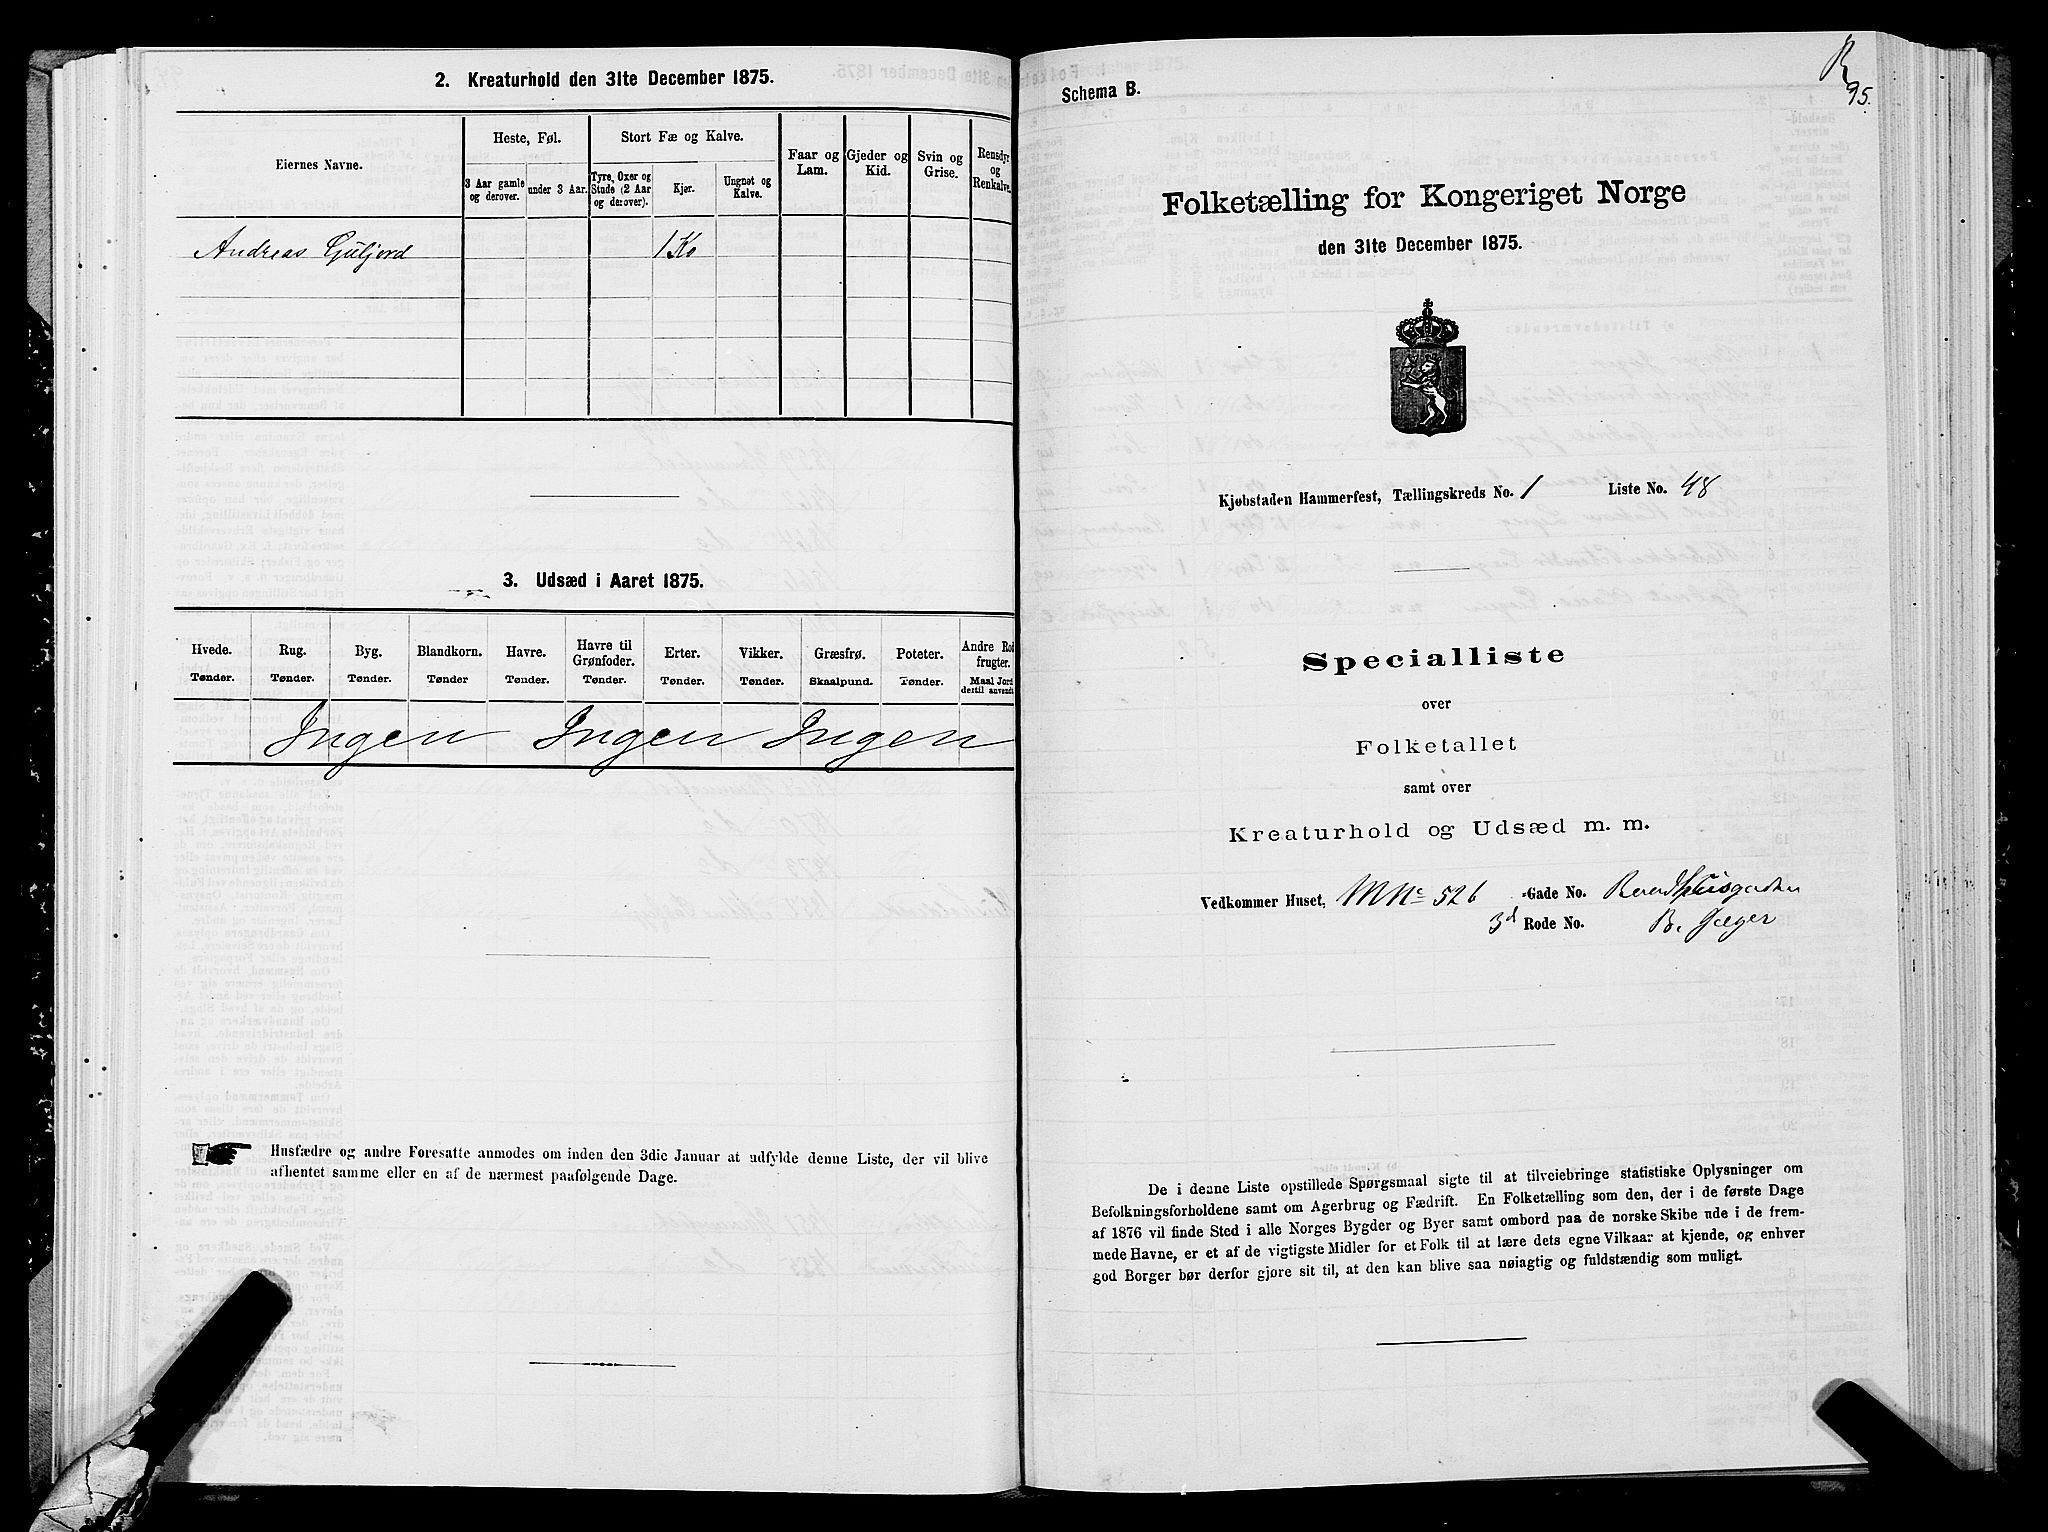 2. Kreaturhold den 31te December 1875.
Eiernes Navne.
Heste, Føl.
Stort Fæ og Kalve.
Faar og Lam.
Gjeder og Kid.
Svin og Grise.
Rensdyr og Renkalve.
3 Aar gamle og derover.
under 3 Aar.
Tyre, Oxer og Stude (2 Aar og derover).
Kjør.
Ungnøt og Kalve.
Andreas Guljord 1 Ko
3. Udsæd i Aaret 1875.
Hvede. Rug. Byg. Blandkorn. Havre. Havre til Grønfoder. Erter. Vikker. Græsfrø. Poteter. Andre Rodfrugter.
Tønder. Tønder. Tønder. Tønder Tønder. Tønder. Tønder. Tønder. Skaalpund. Tønder. Maal Jord dertil anvendt
Ingen Ingen Ingen
Husfædre og andre Foresatte anmodes om inden den 3die Januar at udfylde denne Liste, der vil blive
afhentet samme eller en af de nærmest paafølgende Dage.
95.
Schema B.
Folketælling for Kongeriget Norge
den 31te December 1875.
Kjøbstaden Hammerfest, Tællingskreds No. 1 Liste No. 48
Specialliste
over
Folketallet
samt over
Kreaturhold og Udsæd m. m.
Vedkommer Huset, MNo 526 -Gade No. Raadhusgaden
3d Rode No. B. Jæger
De i denne Liste opstillede Spørgsmaal sigte til at tilveiebringe statistiske Oplysninger om
Befolkningsforholdene samt om Agerbrug og Fædrift. En Folketælling som den, der i de første Dage
af 1876 vil finde Sted i alle Norges Bygder og Byer samt ombord paa de norske Skibe ude i de frem-
mede Havne, er et af de vigtigste Midler for et Folk til at lære dets egne Vilkaar at kjende, og enhver
god Borger bør derfor gjøre sit til, at den kan blive saa nøiagtig og fuldstændig som muligt.